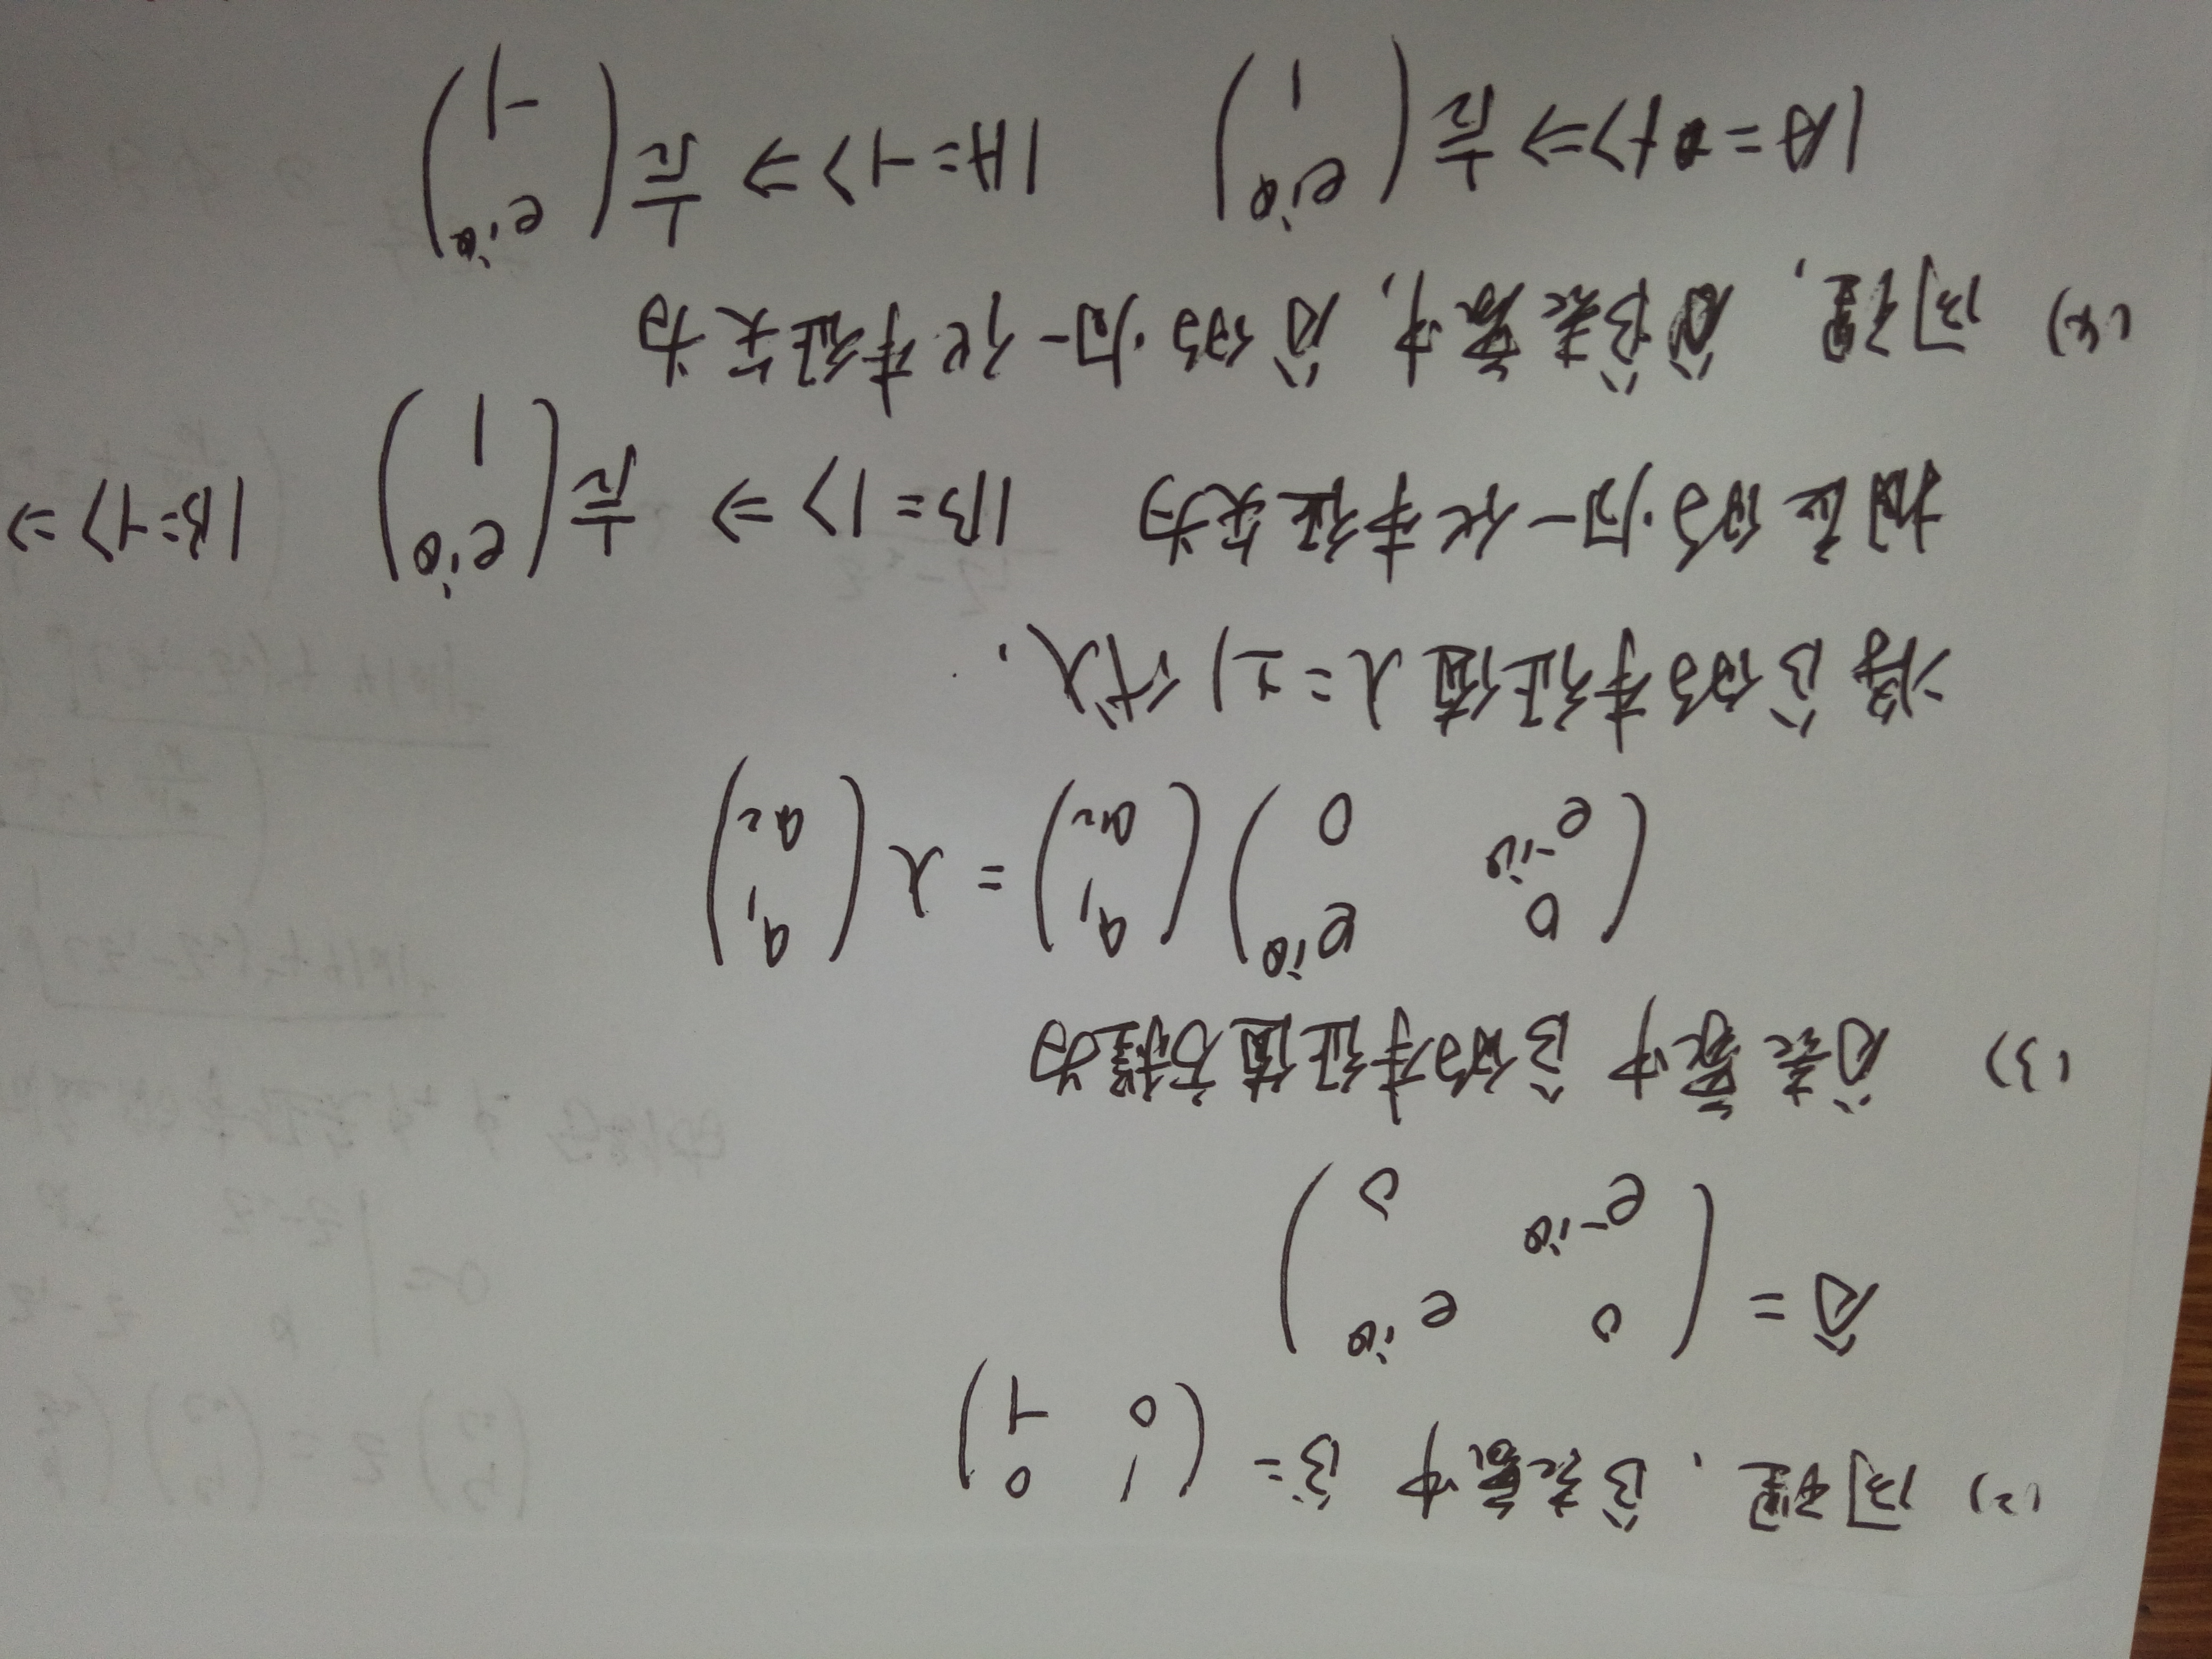 (2) 同理, B̂表象中 B̂ = ( 1 0 ; 0 -1 )
Â = ( 0 e^{iθ} ; e^{-iθ} 0 )
(3) Â表象中 B̂的本征值方程为
( 0 e^{iθ} ; e^{-iθ} 0 ) ( a₁ ; a₂ ) = λ ( a₁ ; a₂ )
将B̂的本征值 λ=±1 代入.
相应的归一化本征矢为 |B=1> ⇒ 1/√2 ( e^{iθ} ; 1 ) |B=-1> ⇒
(4) 同理, B̂表象中, Â的归一化本征矢为
|A=+> ⇒ 1/√2 ( e^{iθ} ; 1 ) |A=-1> ⇒ 1/√2 ( e^{iθ} ; -1 )